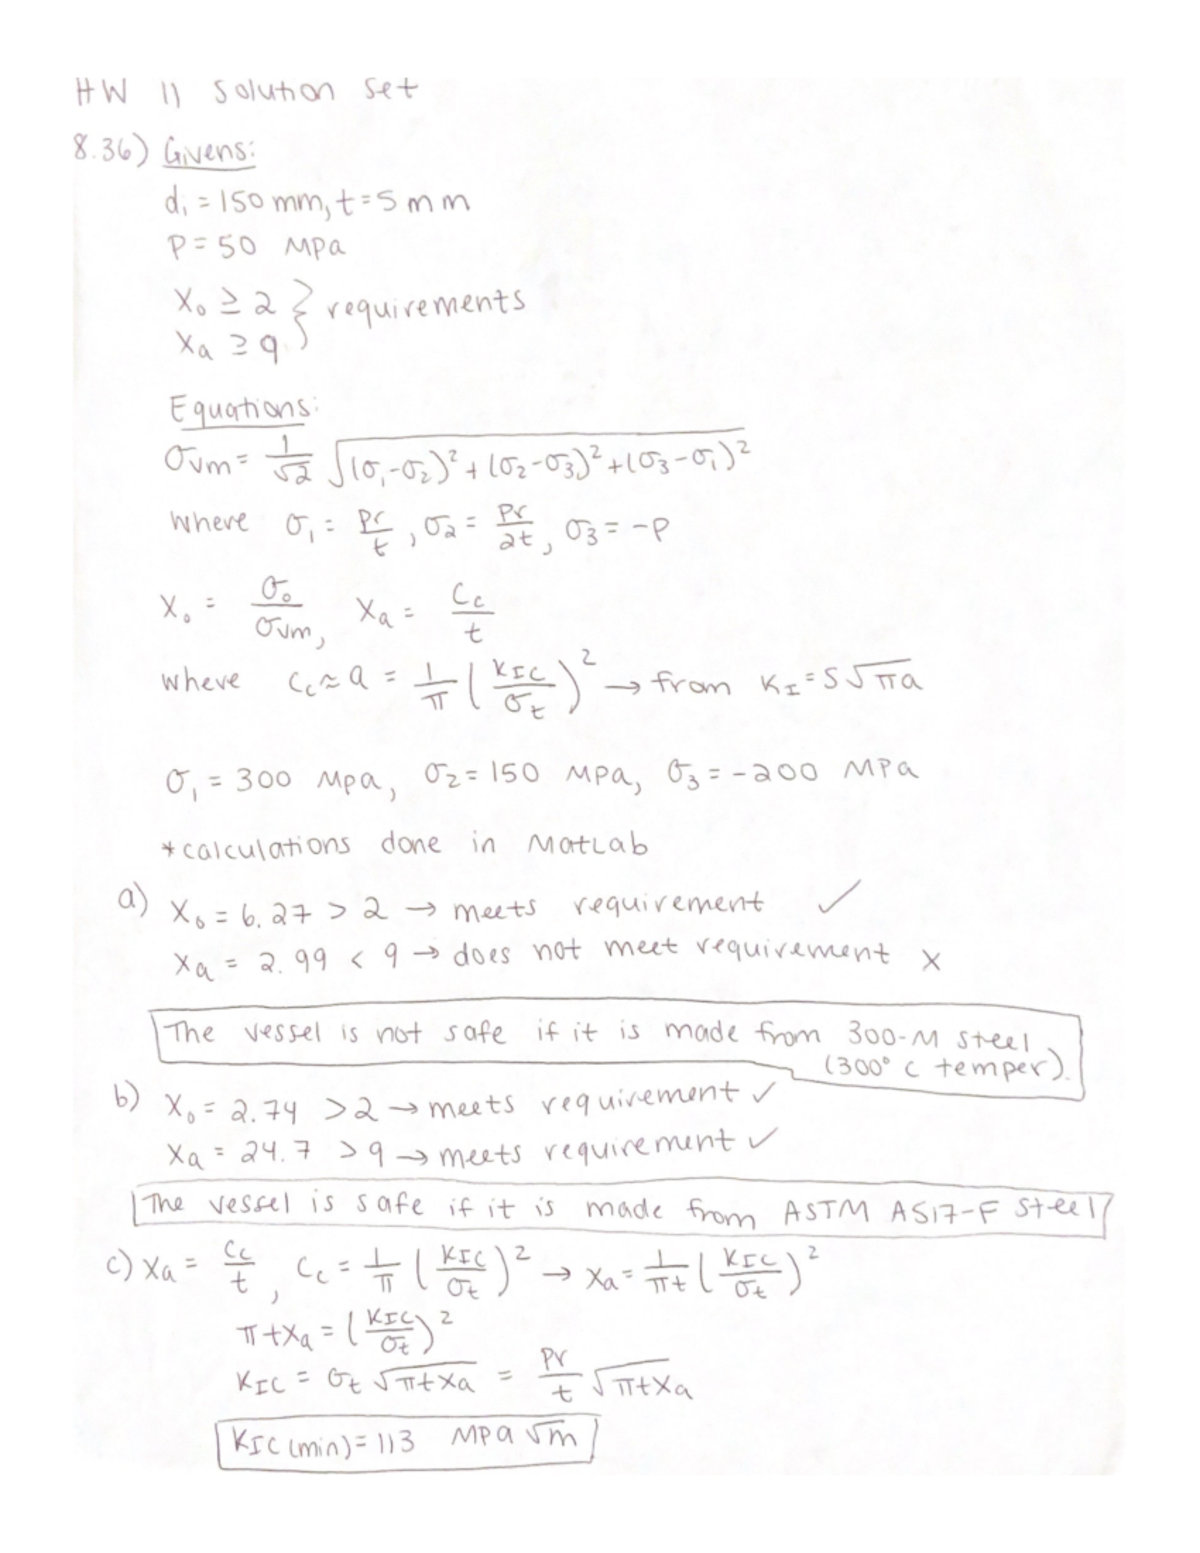 HW 11 Solution Set
8.36) Givens:
d₁ = 150 mm, t = 5 mm
P = 50 MPa
X₀ ≥ 2 } requirements
Xₐ ≥ 9
Equations:
σvm = 1/√2 √((σ₁-σ₂)² + (σ₂-σ₃)² + (σ₃-σ₁)²
where σ₁ = Pr/t, σ₂ = Pr/2t, σ₃ = -P
X₀ = σ₀/σvm, Xₐ = Cc/t
where Cc ≈ a = 1/π (KIC/σt)² → from KI = S√πa
σ₁ = 300 Mpa, σ₂ = 150 MPa, σ₃ = -200 MPa
*calculations done in MatLab
a) X₀ = 6.27 > 2 → meets requirement ✓
Xₐ = 2.99 < 9 → does not meet requirement X
The vessel is not safe if it is made from 300-M steel
(300° C temper).
b) X₀ = 2.74 > 2 → meets requirement ✓
Xₐ = 24.7 > 9 → meets requirement ✓
The vessel is safe if it is made from ASTM A517-F Steel
c) Xₐ = Cc/t, Cc = 1/π (KIC/σt)² → Xₐ = 1/πt (KIC/σt)²
πtXₐ = (KIC/σt)²
KIC = σt √πtXₐ = Pr/t √πtXₐ
KIC (min) = 113 MPa √m